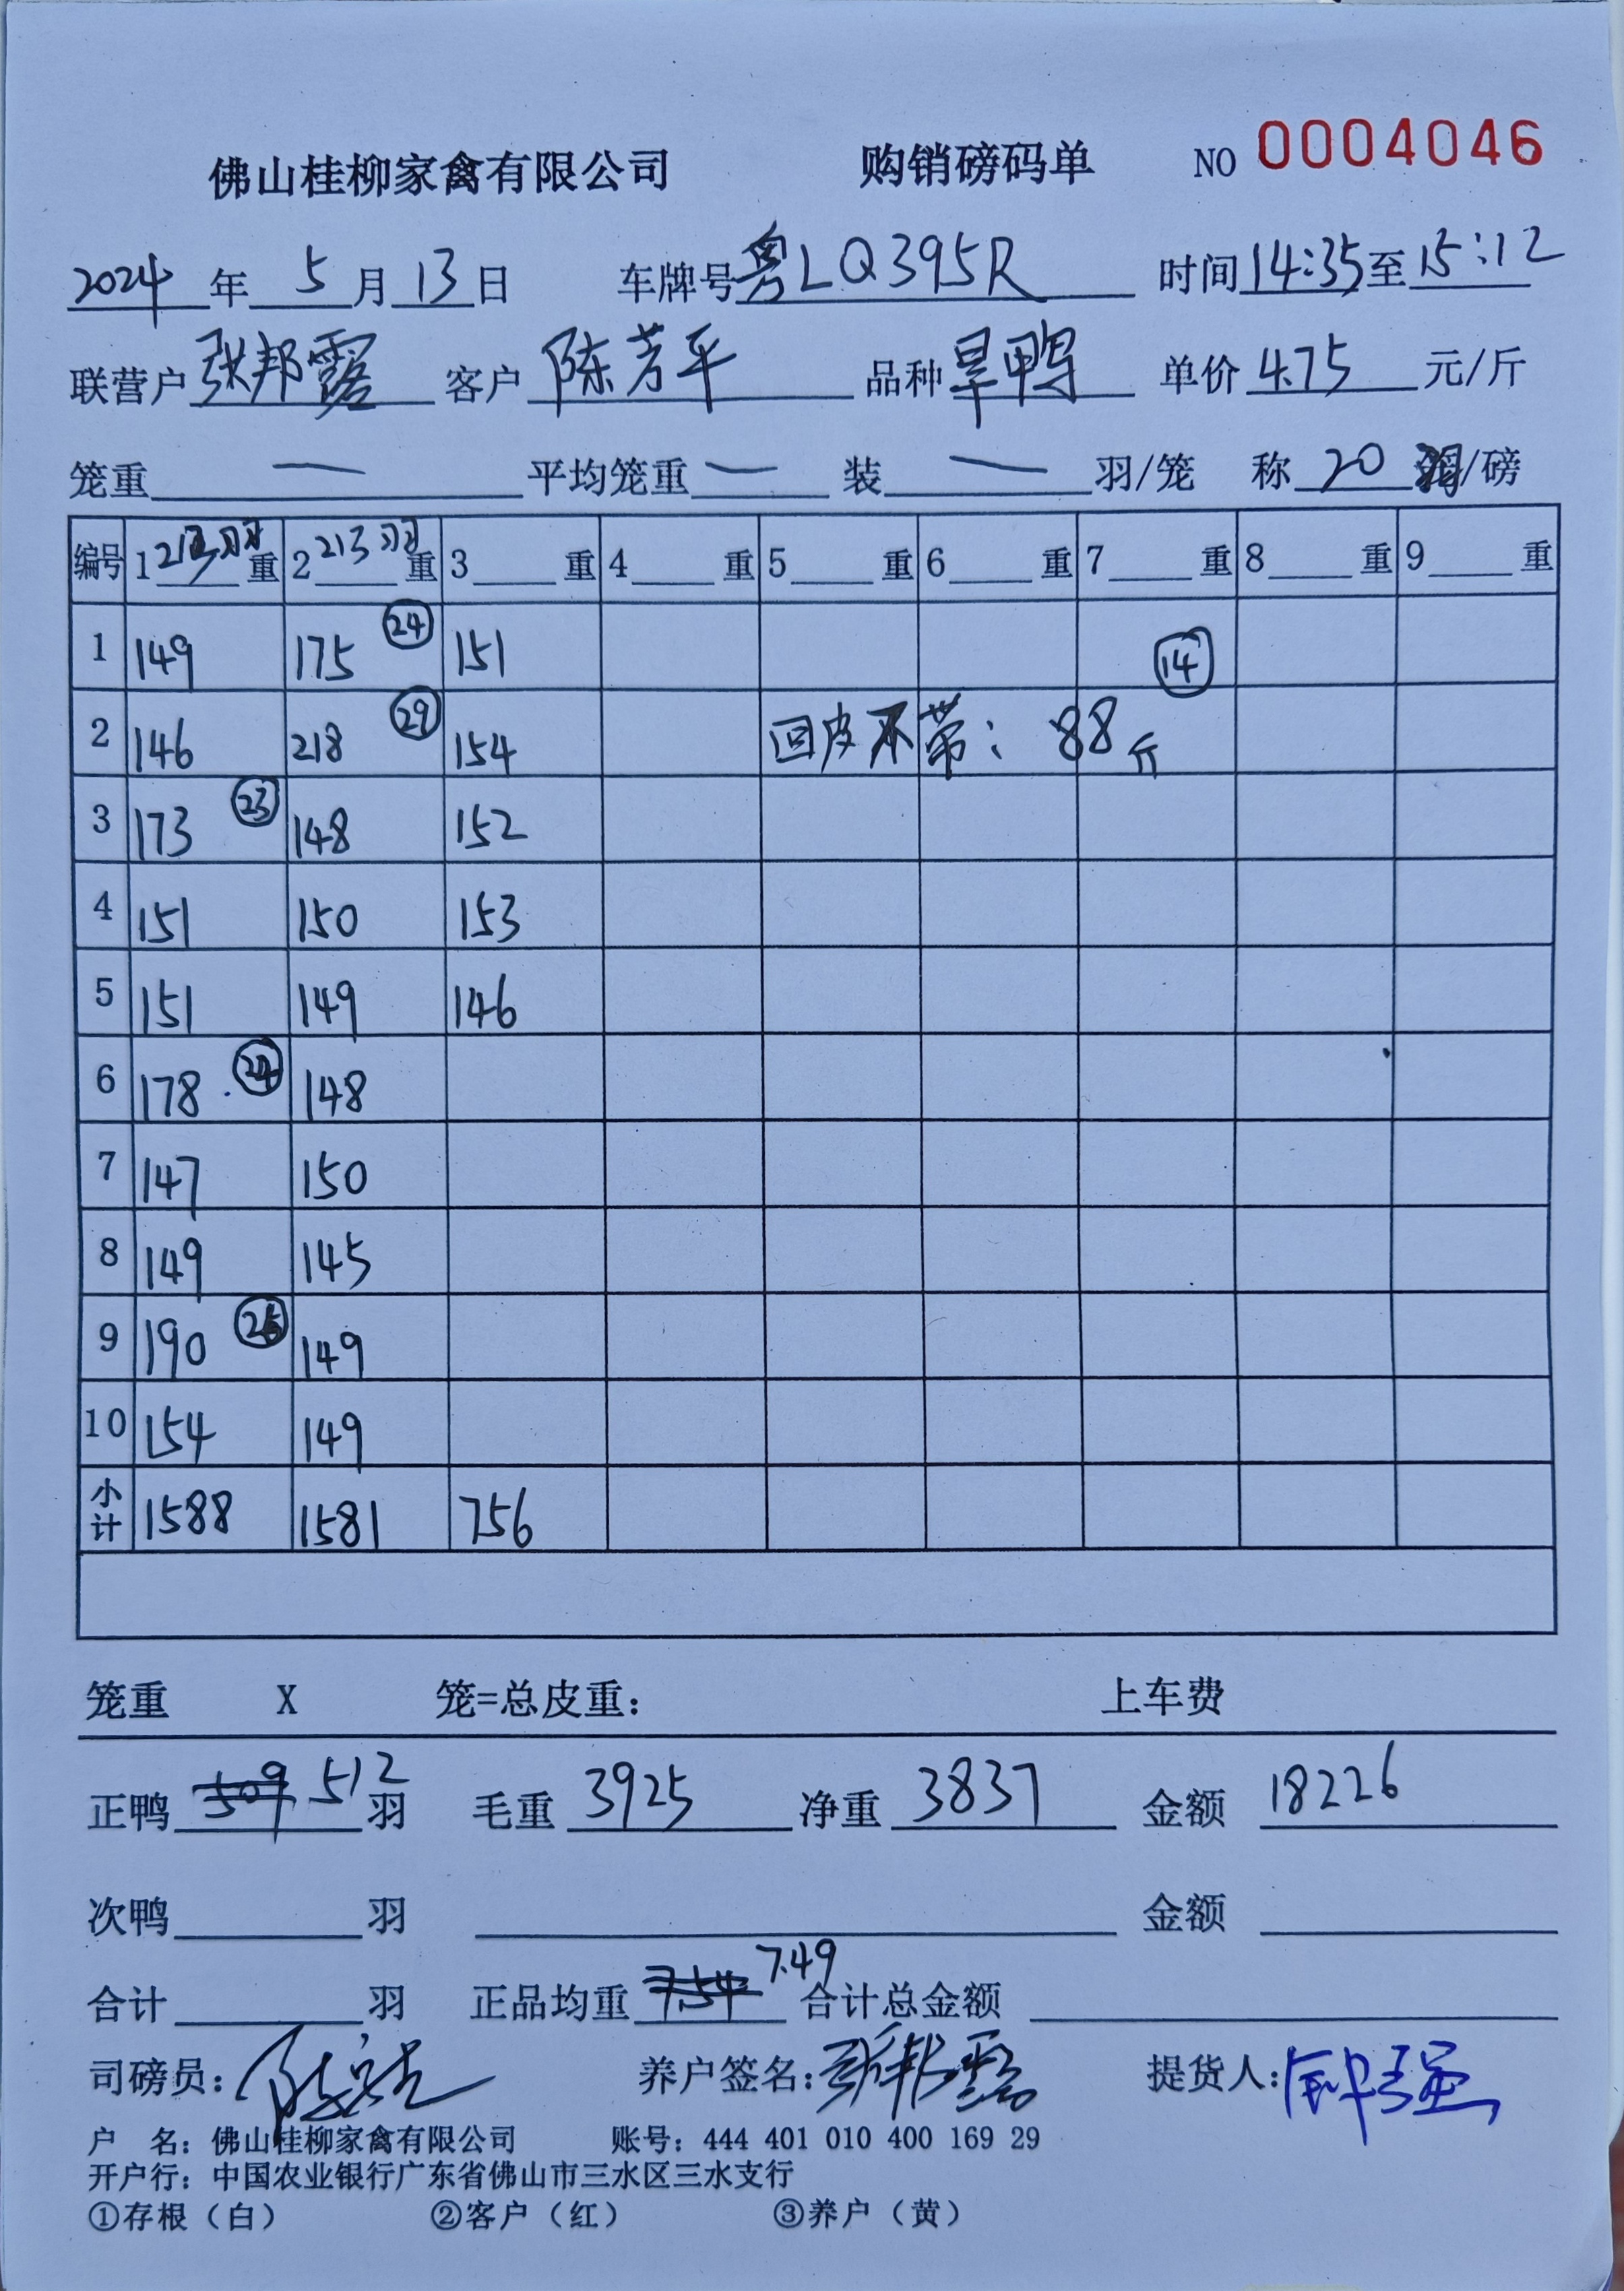 佛山桂柳家禽有限公司 购销磅码单 NO 0004046
2024年 5月 13日 车牌号 粤LQ395R 时间 14:35 至 15:12
联营户 张邦露 客户 陈芳平 品种 旱鸭 单价 4.75 元/斤
笼重 — 平均笼重 — 装 — 羽/笼 称 20 /磅
编号 1 213羽 重 2 213羽 重 3 重 4 重 5 重 6 重 7 重 8 重 9 重
1 149 175 24 151 14
2 146 218 29 154 回皮不带: 88斤
3 173 23 148 152
4 151 150 153
5 151 149 146
6 178 24 148
7 147 150
8 149 145
9 190 149
10 154 149
小计 1588 1581 756
笼重 X 笼=总皮重: 上车费
正鸭 509 512 羽 毛重 3925 净重 3837 金额 18226
次鸭 羽 金额
合计 羽 正品均重 7.54 7.49 合计总金额
司磅员: 养户签名: 张邦露 提货人:
户 名: 佛山桂柳家禽有限公司 账号: 444 401 010 400 169 29
开户行: 中国农业银行广东省佛山市三水区三水支行
①存根（白） ②客户（红） ③养户（黄）